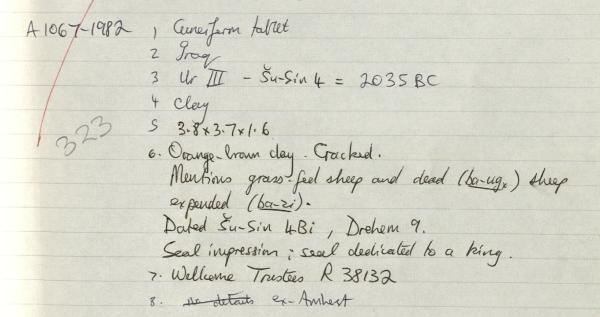 A1067-1982 1 Cuneiform tablet
2 Iraq
3 Ur III - Šu-Sin 4 = 2035 BC
4 Clay
323
5 3.8 x 3.7 x 1.6
6. Orange-brown clay. Cracked.
Mentions grass-fed sheep and dead (ba-ugₓ) sheep
expended (ba-zi).
Dated Šu-Sin 4 Bi, Drehem 9.
Seal impression; seal dedicated to a king.
7. Wellcome Trustees R 38132
8. no details ex-Amherst